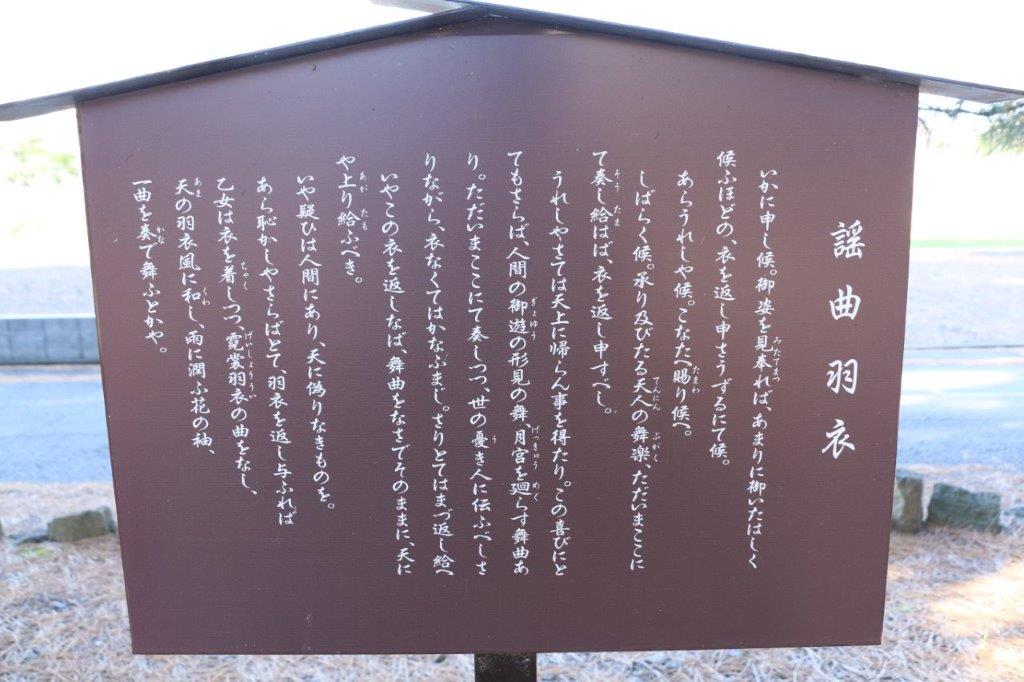 謡曲羽衣
いかに申し候。御姿を見奉れば、あまりに御いたはしく
候ふほどの、衣を返し申さうずるにて候。
あらうれしや候。こなたへ賜り候へ。
しばらく候。承り及びたる天人の舞楽、ただいまここに
て奏し給はば、衣を返し申すべし。
うれしやさては天上に帰らん事を得たり。この喜びにと
てもさらば、人間の御遊の形見の舞、月宮を廻らす舞曲あ
り。ただいまここにて奏しつつ、世の憂き人に伝ふべしさ
りながら、衣なくてはかなふまじ。さりとてはまづ返し給へ
いやこの衣を返しなば、舞曲をなさでそのままに、天に
や上り給ふべき。
いや疑ひは人間にあり、天に偽りなきものを。
あら恥かしやさらばとて、羽衣を返し与ふれば
乙女は衣を着しつつ、霓裳羽衣の曲をなし、
天の羽衣風に和し、雨に潤ふ花の袖、
一曲を奏で舞ふとかや。